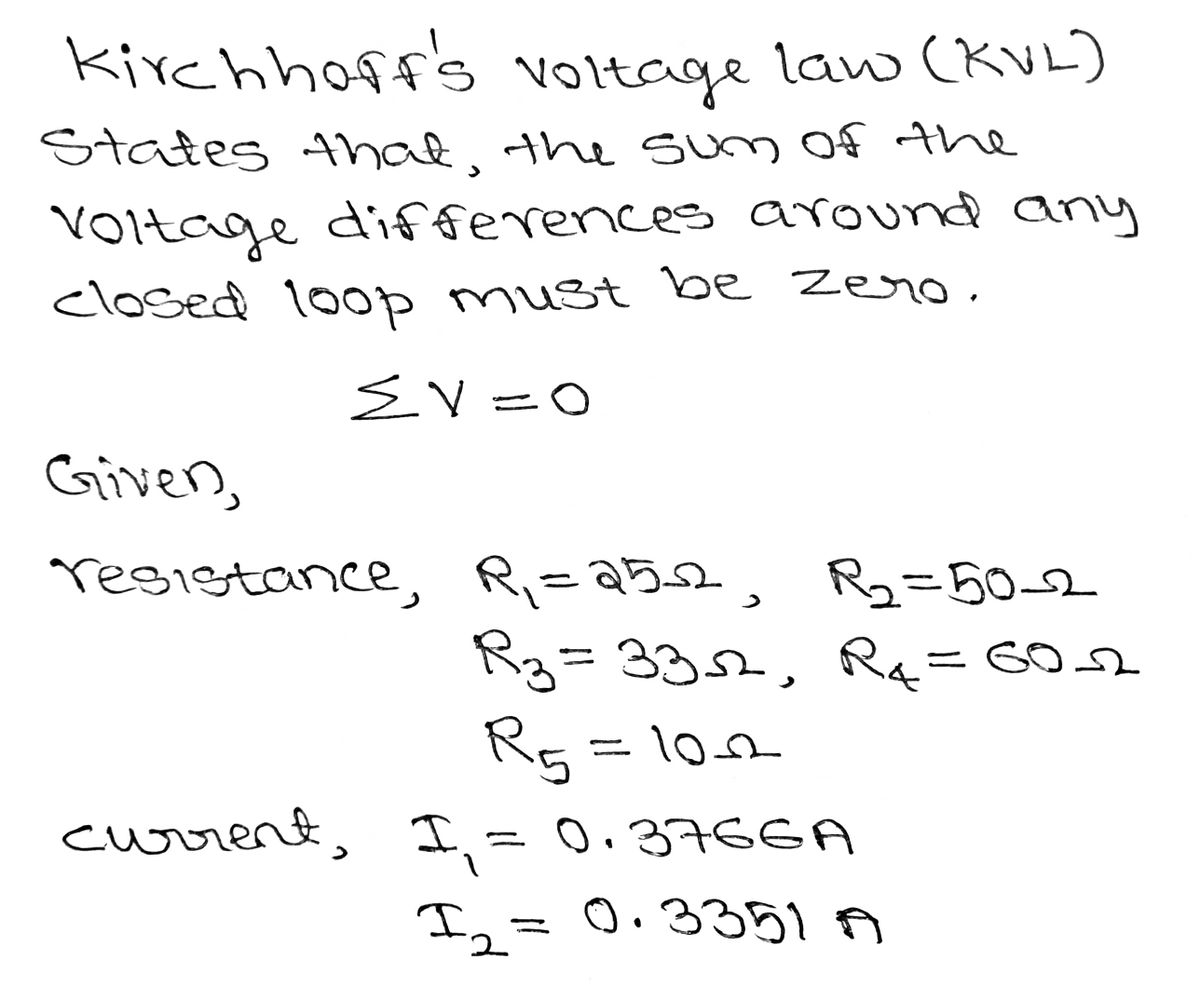 Kirchhoff's voltage law (KVL)
States that, the sum of the
voltage differences around any
closed loop must be zero.
ΣV=0
Given,
resistance, R₁=25Ω, R₂=50Ω
R₃=33Ω, R₄=60Ω
R₅=10Ω
current, I₁=0.3766A
I₂=0.3351A